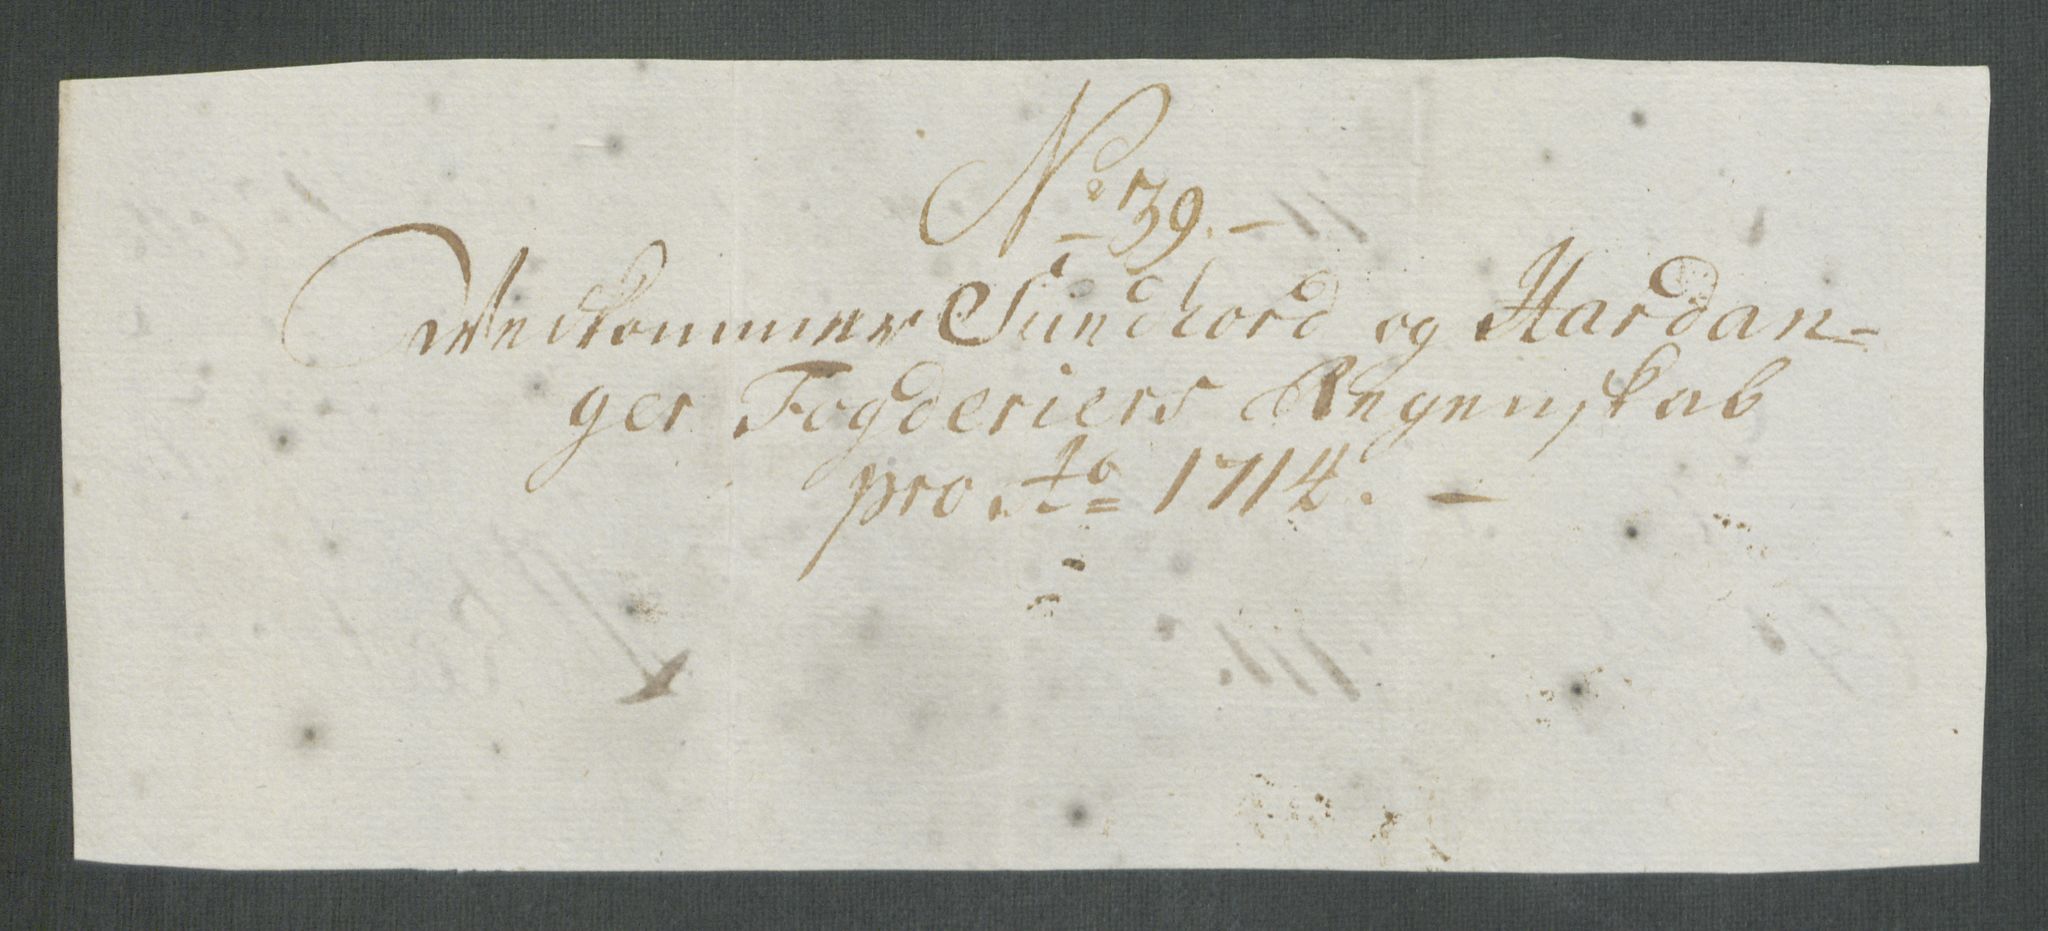 No 39. –
Vedkommer Sundhord og Hardan=
ger Fogderiers Regenskab
pro Ao 1714. –